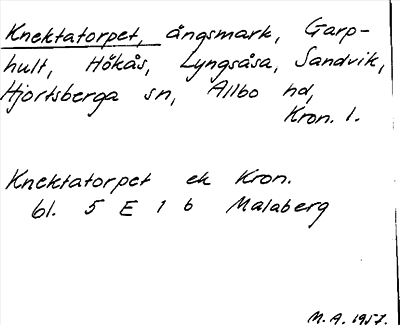 Knektatorpet, ängsmark, Garp-
hult, Hökås, Lyngsåsa, Sandvik,
Hjortsberga sn, Allbo hd,
Kron. l.
Knektatorpet ek Kron.
bl. 5 E 1 b Malaberg
M. A. 1957.